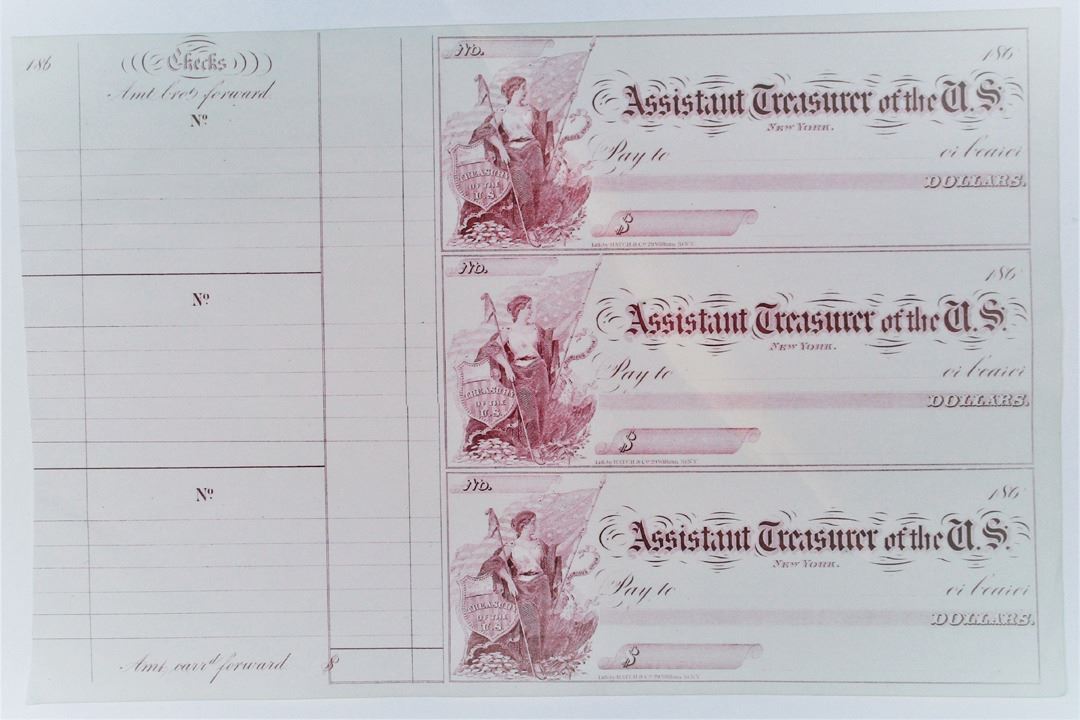 186
Checks
Amt. bro.t forward
No
No
No
Amt. carr.d forward $
No. 186
Assistant Treasurer of the U.S.
NEW YORK.
Pay to or bearer
DOLLARS.
TREASURY
OF THE
U.S.
$
Lith. by HATCH & Co.
No. 186
Assistant Treasurer of the U.S.
NEW YORK.
Pay to or bearer
DOLLARS.
TREASURY
OF THE
U.S.
$
Lith. by HATCH & Co.
No. 186
Assistant Treasurer of the U.S.
NEW YORK.
Pay to or bearer
DOLLARS.
TREASURY
OF THE
U.S.
$
Lith. by HATCH & Co.